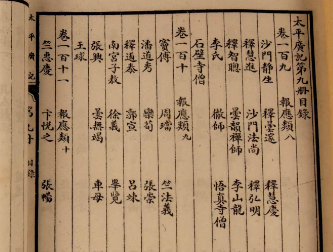 太平廣記第九冊目錄
卷一百九 報應類八
沙門靜生 釋曇邃 釋慧慶
釋慧進 沙門法尚 釋弘明
釋智聰 曇韻禪師 李山龍
李氏 徹師 悟真寺僧
石壁寺僧
卷一百十 報應類九
竇傅 周璫 竺法義
潘道秀 欒荀 張崇
釋道泰 郭宣 呂竦
南宮子敖 徐義 畢覽
張興 曇無竭 車母
王球
卷一百十一 報應類十
竺惠慶 卞悅之 張暢
太平廣記 第九冊 目錄